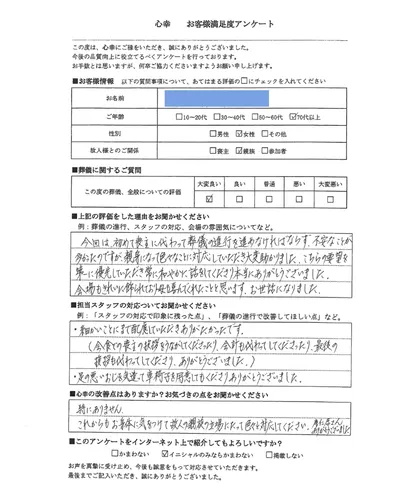 心幸　お客様満足度アンケート
この度は、心幸にご縁をいただき、誠にありがとうございました。
今後の品質向上に役立てるべくアンケートを行っております。
お手数とは思いますが、何卒ご協力くださいますようお願い申し上げます。
■お客様情報　以下の質問事項について、あてはまる評価の□にチェックを入れてください
お名前
ご年齢　□10～20代　□30～40代　□50～60代　☑70代以上
性別　□男性　☑女性　□その他
故人様とのご関係　□喪主　☑親族　□参加者
■葬儀に関するご質問
この度の葬儀、全般についての評価　大変良い　良い　普通　悪い　大変悪い
☑　□　□　□　□
■上記の評価をした理由をお聞かせください
例：葬儀の進行、スタッフの対応、会場の雰囲気についてなど。
今回は、初めて喪主に代わって葬儀の進行を進めなければならず、不安なことが
多かったのですが、親身になって色々なことに対応していただき大変助かりました。こちらの要望を
第一に優先していただき常に和やかに話をしてくださり本当にありがとうございました。
会場もきれいに飾られており母も喜んでくれたことと思います。お世話になりました。
■担当スタッフの対応についてお聞かせください
例：「スタッフの対応で印象に残った点」、「葬儀の進行で改善してほしい点」など。
・細かいことにまで配慮していただきありがたかったです。
（会食での喪主の挨拶をうながしてくださったり、会計も代わってしてくださったり、最後の
挨拶も代わってしてくださり、ありがとうございました。）
・足の悪いおじを気遣って車椅子を用意してもくださりありがとうございました。
■心幸の改善点はありますか？お気づきの点をお聞かせください
特にありません。
これからもお身体に気をつけて故人の親族の立場にたって色々対応してください。
ありがとうございました
■このアンケートをインターネット上で紹介してもよろしいですか？
□かまわない　☑イニシャルのみならかまわない　□掲載しない
お声を真摯に受け止め、今後も誠意をもって対応させていただきます。
最後までご記入いただき、誠にありがとうございました。